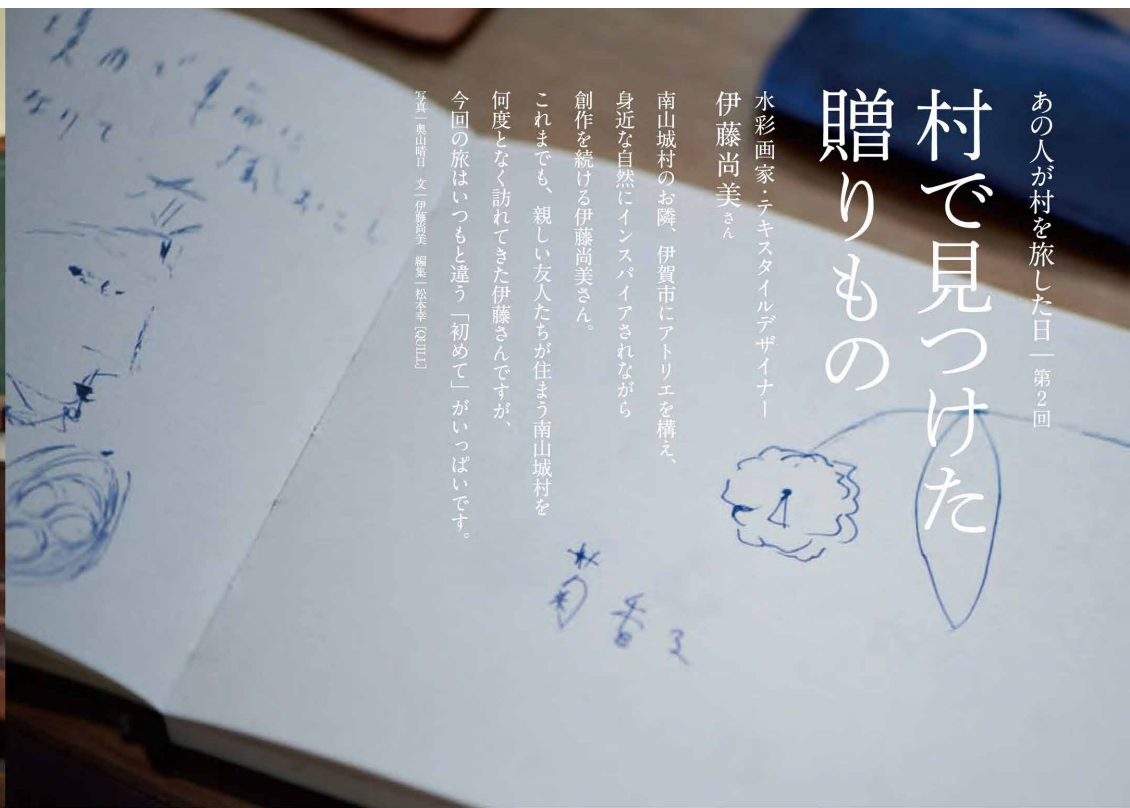 あの人が村を旅した日｜第2回
村で見つけた
贈りもの
水彩画家・テキスタイルデザイナー
伊藤尚美さん
南山城村のお隣、伊賀市にアトリエを構え、
身近な自然にインスパイアされながら
創作を続ける伊藤尚美さん。
これまでも、親しい友人たちが住まう南山城村を
何度となく訪れてきた伊藤さんですが、
今回の旅はいつもと違う「初めて」がいっぱいです。
写真｜奥山晴日　文｜伊藤尚美　編集｜松本幸［QUILL］
菊香る
なりて